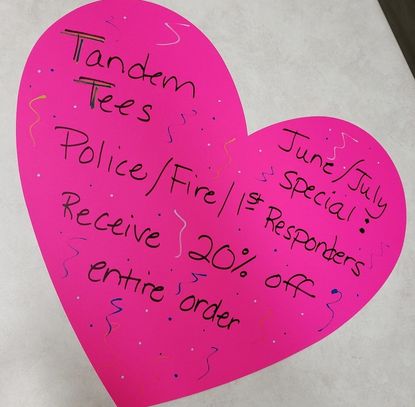 Tandem
Tees
June/July
Special:
Police/Fire/1st Responders
Receive 20% off
entire order